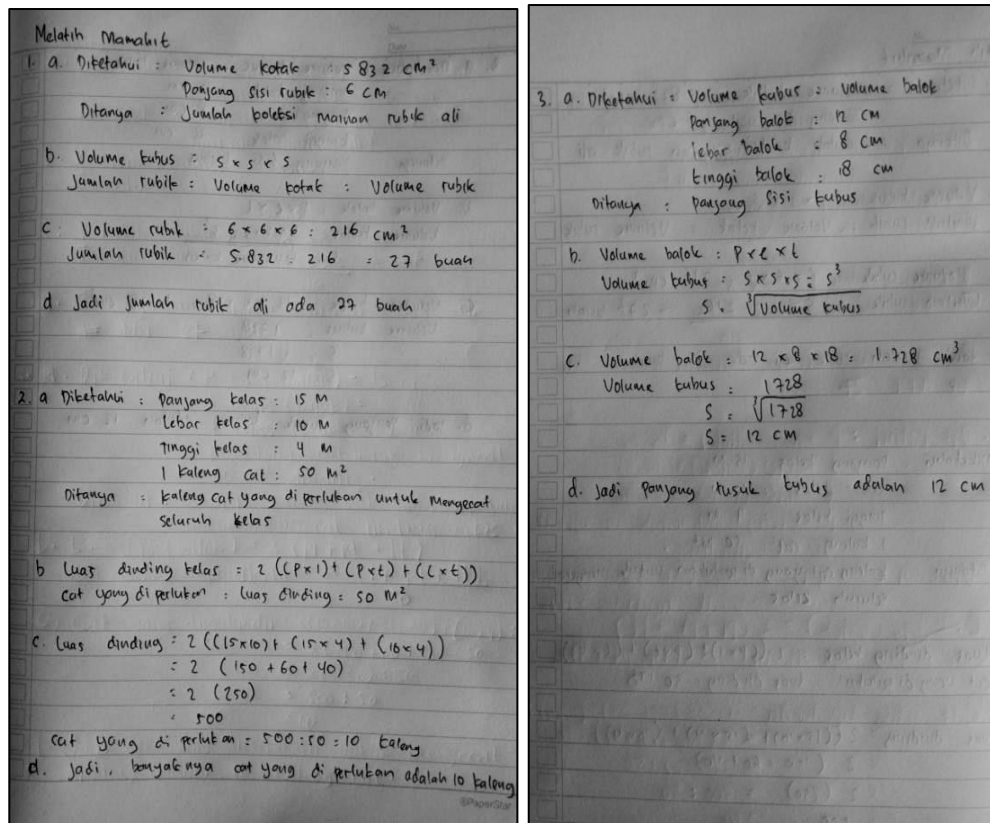 Melatih Mamahit
1. a. Diketahui : Volume kotak : 5 832 cm²
Panjang sisi rubik : 6 cm
Ditanya : Jumlah koleksi mainan rubik ali
b. Volume kubus : s × s × s
Jumlah rubik : Volume kotak : Volume rubik
c. Volume rubik : 6 × 6 × 6 : 216 cm²
Jumlah rubik : 5.832 : 216 = 27 buah
d Jadi Jumlah rubik ali ada 27 buah
2. a Diketahui : Panjang kelas : 15 M
Lebar kelas : 10 M
Tinggi kelas : 4 M
1 kaleng cat : 50 M²
Ditanya : kaleng cat yang di perlukan untuk mengecat
seluruh kelas
b Luas dinding kelas = 2 ((p×l)+(p×t)+(l×t))
Cat yang di perlukan : luas dinding : 50 M²
c. Luas dinding = 2 ((15×10)+(15×4)+(10×4))
= 2 (150 + 60 + 40)
= 2 (250)
= 500
Cat yang di perlukan = 500 : 50 = 10 kaleng
d. Jadi, banyaknya cat yang di perlukan adalah 10 kaleng
@PaperStar
3. a. Diketahui = Volume kubus : volume balok
Panjang balok : 12 cm
lebar balok = 8 cm
tinggi balok : 18 cm
Ditanya : panjang sisi kubus
b. Volume balok : p × l × t
Volume kubus : s × s × s = s³
s = ∛volume kubus
c. Volume balok = 12 × 8 × 18 = 1.728 cm³
Volume kubus = 1728
s = ∛1728
s = 12 cm
d. Jadi panjang rusuk kubus adalah 12 cm